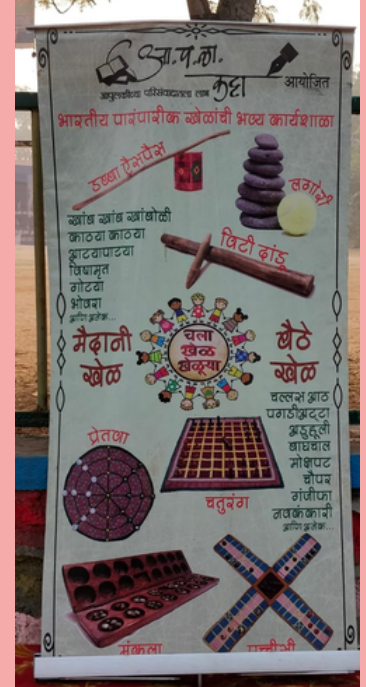 आ.प.ला.
कट्टा
आयोजित
आपुलकीच्या परिसंवादातला लाभ
भारतीय पारंपारीक खेळांची भव्य कार्यशाळा
डब्बा ऐसपैस
लगोरी
विटी दांडू
खांब खांब खांबोळी
काठया काठया
आटयापाटया
विषामृत
गोटया
भोवरा
आणि अनेक...
मैदानी
खेळ
चला
खेळ
खेळूया
बैठे
खेळ
चल्लस आठ
पगडीअट्टा
अडुहूली
वाघचाल
मोक्षपट
चौपर
गंजीफा
नवकंकारी
आणि अनेक...
प्रेतवा
चतुरंग
मंकला
पच्चीसी